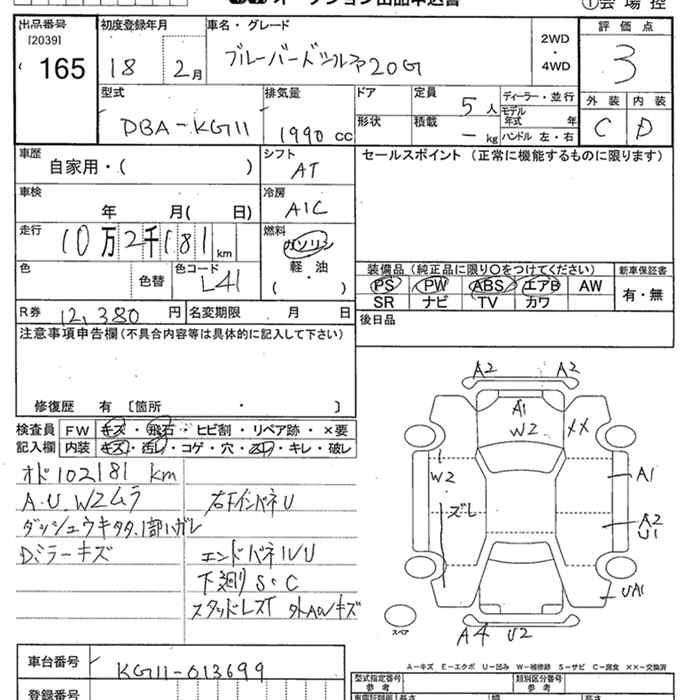 オークション出品申込書
①会場控
出品番号
[2039]
165
初度登録年月
18 2月
車名・グレード
ブルーバードシルフィ20G
2WD
・
4WD
評価点
3
外装 内装
C D
型式
DBA-KG11
排気量
1990 cc
ドア
形状
定員 5人
積載 - kg
ディーラー・並行
モデル
年式 年
ハンドル 左・右
車歴
自家用・( )
シフト
AT
セールスポイント (正常に機能するものに限ります)
車検
年 月( 日)
冷房
A/C
走行
10万2千181 km
燃料
ガソリン
軽・油
( )
色
色替
色コード
L41
装備品 (純正品に限り○をつけてください)
新車保証書
PS PW ABS エアB AW
SR ナビ TV カワ
有・無
R券 12,380 円
名変期限 月 日
後日品
注意事項申告欄 (不具合内容等は具体的に記入して下さい)
修復歴 有 〔箇所 ・ 〕
検査員 FW キズ・飛石・ヒビ割・リペア跡・×要
記入欄 内装 キズ・汚れ・コゲ・穴・・キレ・破レ
オド102181 km
A.U.W2ムラ
右インパネU
ダッシュウキタタ、1部ハガレ
Dミラーキズ
エンドパネルU
下廻りS・C
スタッドレスT 外AWキズ
A2 A2
A1
W2
XX
W2
ズレ
A1
A2
U1
UA1
A4 U2
スペア
A-キズ E-エクボ U-凹み W-補修跡 S-サビ C-腐食 XX-交換済
車台番号
KG11-013699
登録番号
型式指定番号
参考
類別区分番号
参考